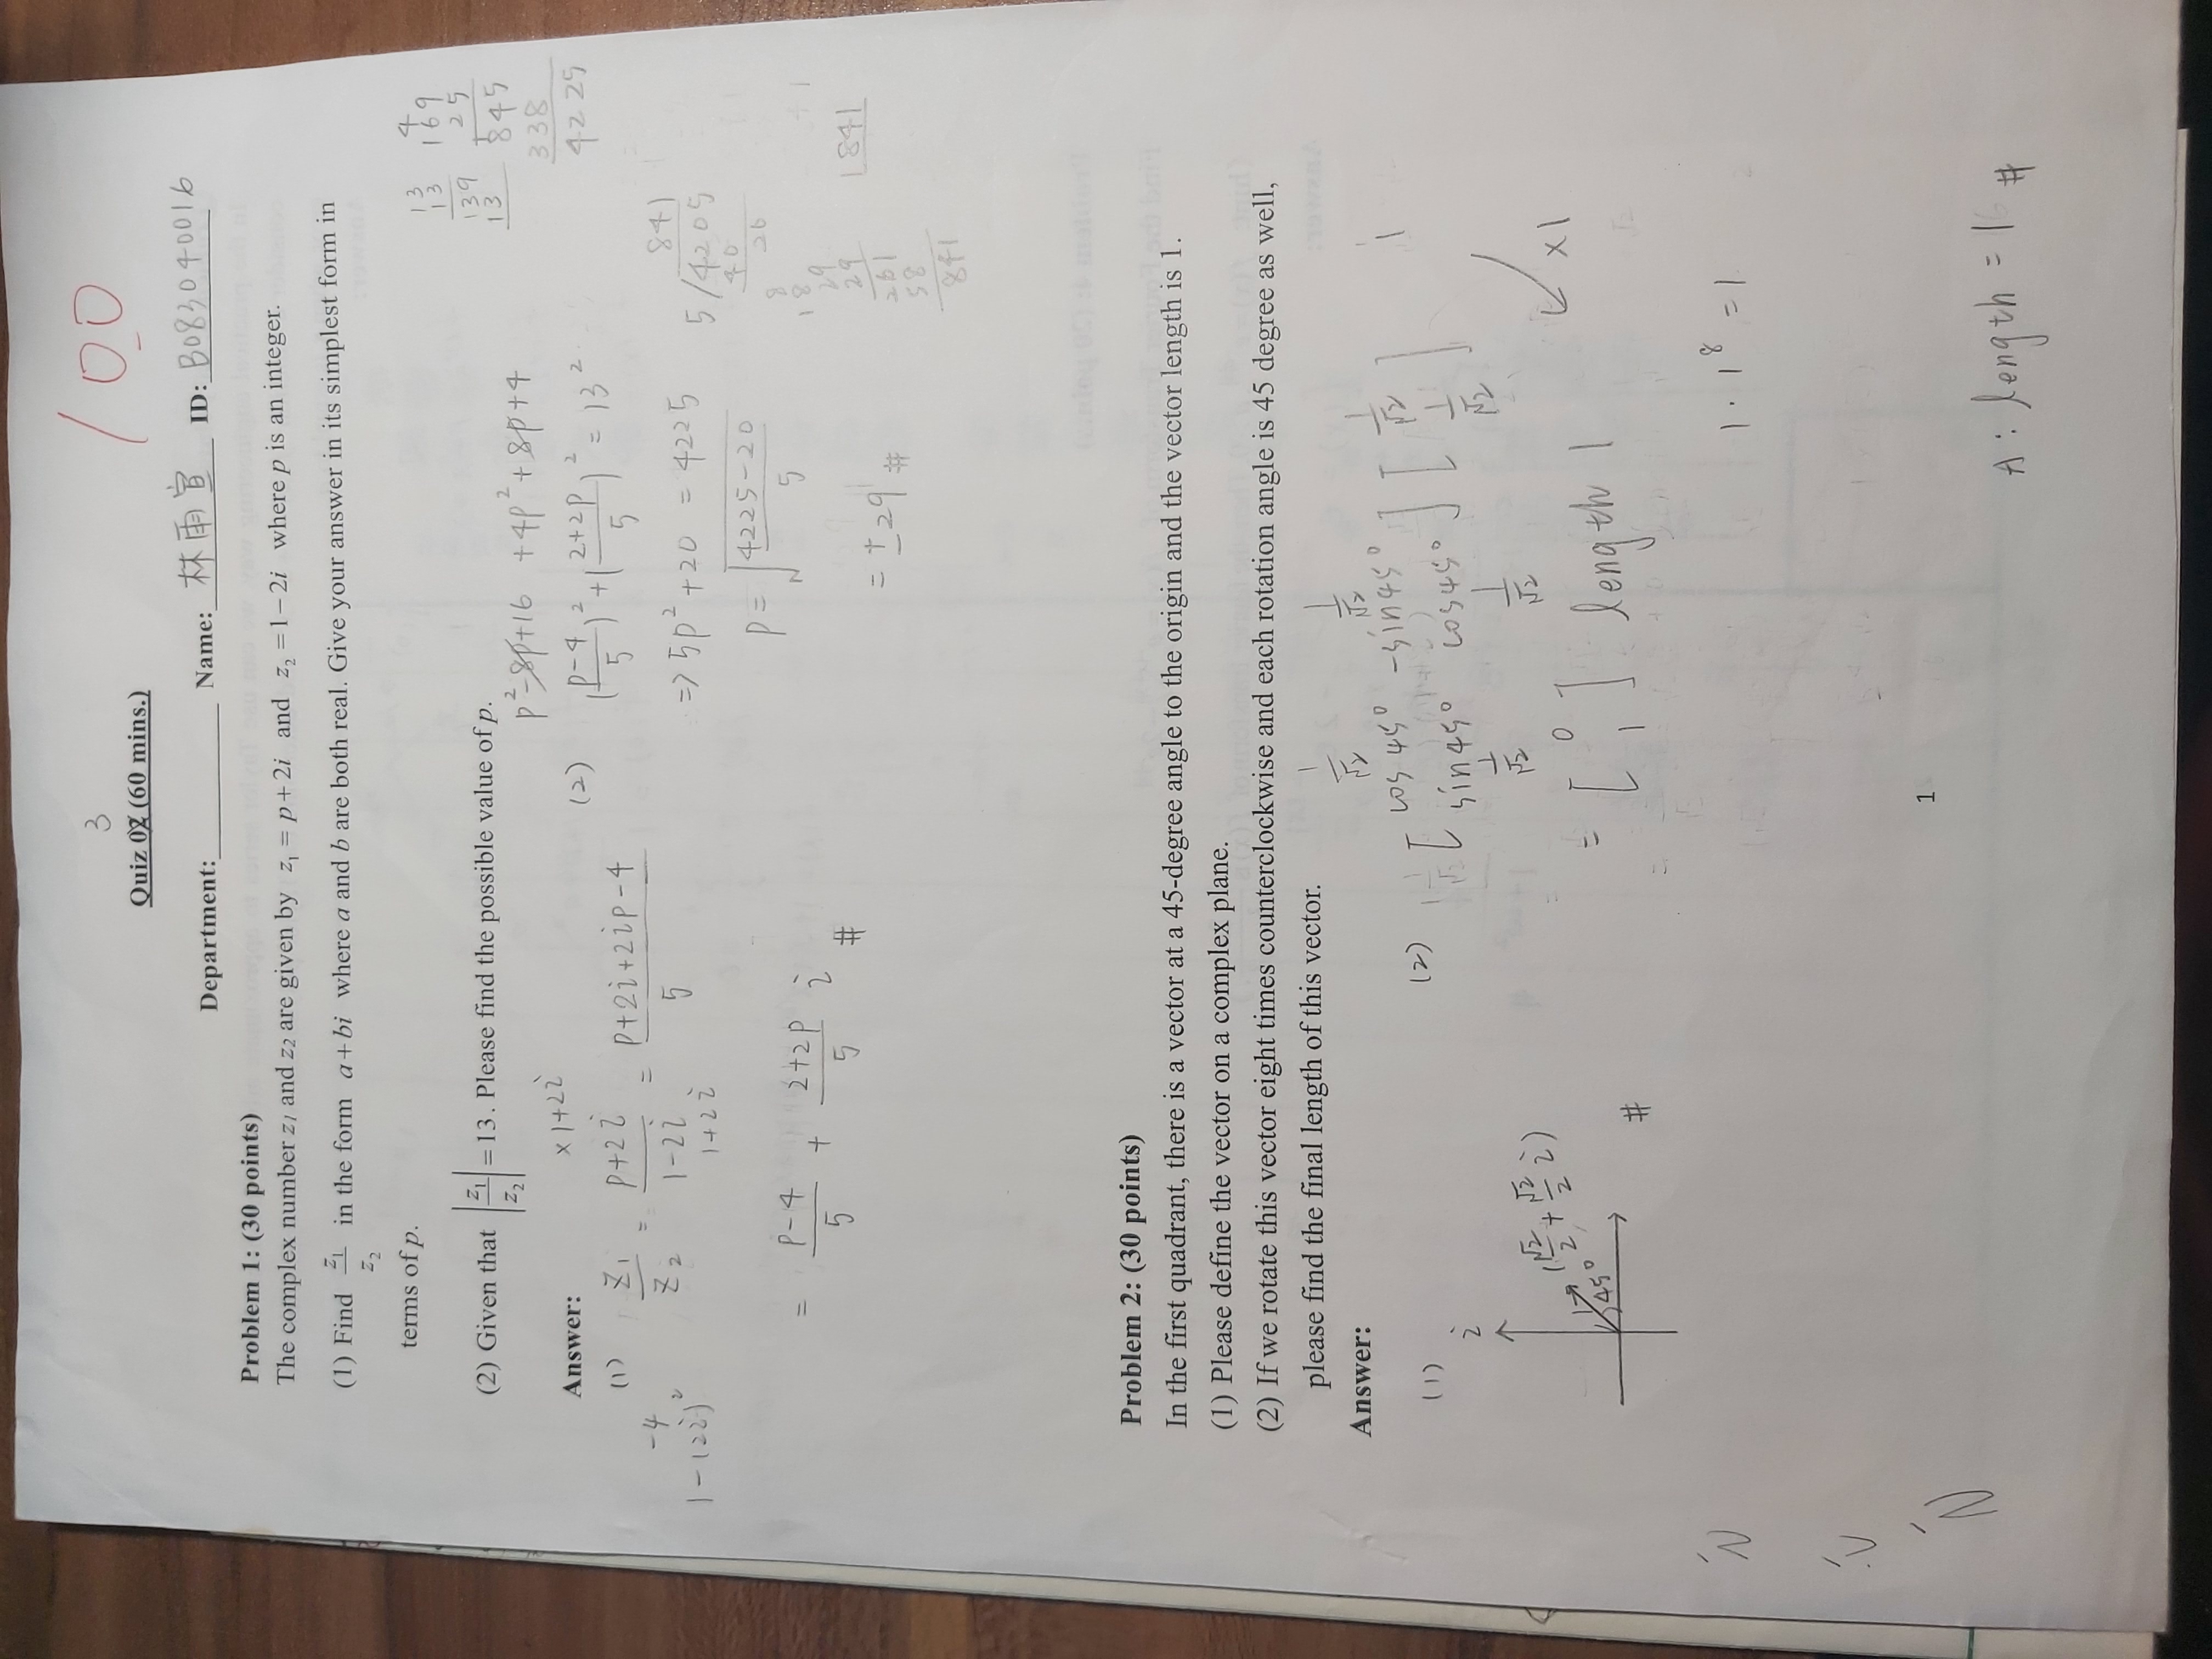 3
100
Quiz 02 (60 mins.)
Department: Name: 林雨宣 ID: B083040016
Problem 1: (30 points)
The complex number z1 and z2 are given by z1 = p + 2i and z2 = 1 − 2i where p is an integer.
(1) Find z1/z2 in the form a + bi where a and b are both real. Give your answer in its simplest form in
terms of p.
(2) Given that |z1/z2| = 13. Please find the possible value of p.
Answer:
×1+2i
(1) z1/z2 = p+2i/1-2i = p+2i+2ip-4/5
1+2i
-4
1-(2i)²
= p-4/5 + 2+2p/5 i #
p²-8p+16 +4p²+8p+4
(2) (p-4/5)² + (2+2p/5)² = 13²
=> 5p²+20 = 4225
p = √4225-20/5
= ±29 #
13
13
139
13
4
169
25
845
338
4225
841
5/4205
40
20
8
18
29
29
261
58
841
841
Problem 2: (30 points)
In the first quadrant, there is a vector at a 45-degree angle to the origin and the vector length is 1.
(1) Please define the vector on a complex plane.
(2) If we rotate this vector eight times counterclockwise and each rotation angle is 45 degree as well,
please find the final length of this vector.
Answer:
(1)
i
1
(√2/2 + √2/2 i)
45°
#
1/√2 1/√2
(2) [cos45° -sin45° sin45° cos45°] [1/√2 1/√2]
1/√2 1/√2
i
×1
= [0 1] length 1
1·1⁸ = 1
1
A: length = 1 #